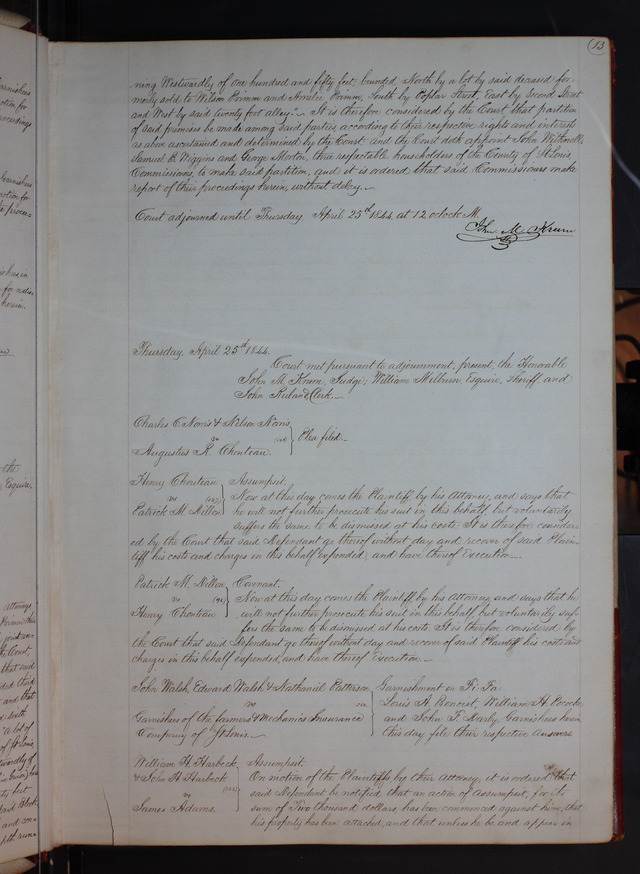 13
ning Westwardly of one hundred and fifty feet, bounded, North by a lot by said deceased for-
merly sold to Wilson Primm and Amelie Primm, South by Poplar Street, East by Second Street
and West by said twenty foot alley. It is therefore considered by the Court that partition
of said premises be made among said parties according to their respective rights and interests
as above ascertained and determined by the Court and the Court doth appoint John Withnell,
Samuel B. Wiggins and George Morton, three respectable householders of the County of St Louis,
Commissioners, to make said partition, and it is ordered that said Commissioners make
report of their proceedings herein, without delay.
Court adjourned until Thursday April 25th 1844 at 12 oclock M.
John M. Krum
Thursday, April 25th 1844.
Court met pursuant to adjournment, present, the Honorable
John M. Krum, Judge, William Milburn Esquire, Sheriff and
John Ruland Clerk.
Charles C Norris & Nelson Norris
vs
Plea filed.
Augustus R. Chouteau.
Henry Chouteau Assumpsit.
vs Now at this day comes the Plaintiff by his Attorney, and says that
Patrick M. Dillon he will not further prosecute his suit in this behalf, but voluntarily
suffers the same to be dismissed at his costs. It is therefore consider-
ed by the Court that said Defendant go thereof without day and recover of said Plain-
tiff his costs and charges in this behalf expended, and have thereof Execution.
Patrick M. Dillon, Covenant.
vs Now at this day comes the Plaintiff by his Attorney and says that he
Henry Chouteau will not further prosecute his suit in this behalf, but voluntarily suf-
fers the same to be dismissed at his costs. It is therefore considered by
the Court that said Defendant go thereof without day and recover of said Plaintiff his costs and
charges in this behalf expended, and have thereof Execution.
John Walsh, Edward Walsh & Nathaniel Patterson Garnishment on Fi: Fa:
vs Louis A. Benoist, William H. Pococke
Garnishees of the farmers & Mechanics Insurance and John F. Darby, Garnishees herein
Company of St Louis. this day file their respective answers
William H. Harbeck Assumpsit.
& John H. Harbeck On motion of the Plaintiffs by their Attorney, it is ordered that
vs said Defendant be notified that an action of Assumpsit, for the
James Adams. sum of Five thousand dollars has been commenced against him, that
his property has been attached, and that unless he be and appear in